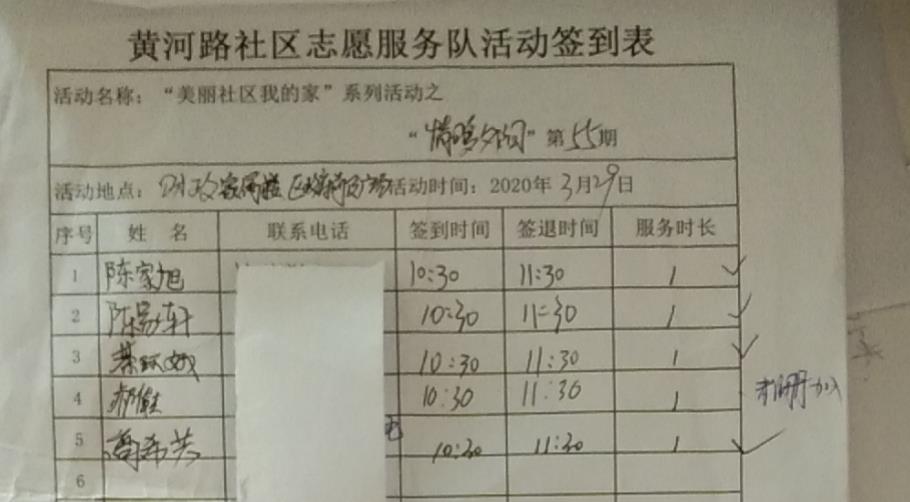 黄河路社区志愿服务队活动签到表
活动名称：“美丽社区我的家”系列活动之
“情暖夕阳”第55期
活动地点：财政家属楼 区 广场 活动时间：2020年3月29日
序号 姓 名 联系电话 签到时间 签退时间 服务时长
1 陈家旭 10:30 11:30 1
2 陈易轩 10:30 11:30 1
3 10:30 11:30 1
4 10:30 11:30 1
5 葛希芸 10:30 11:30 1
6